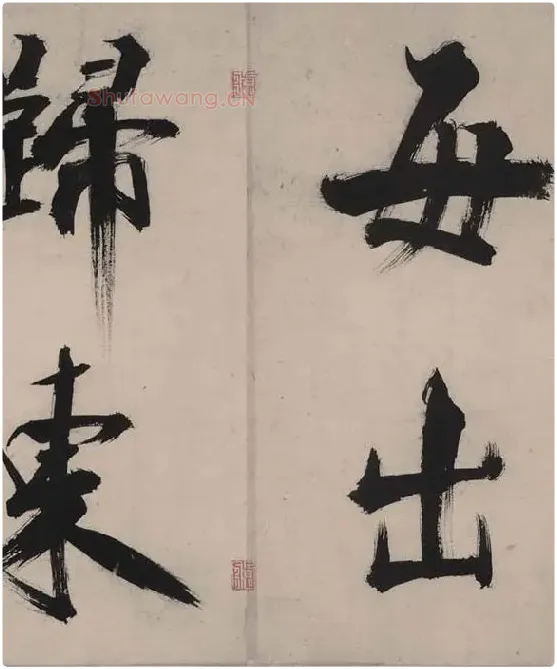 每出
歸東
Shufawang.CN